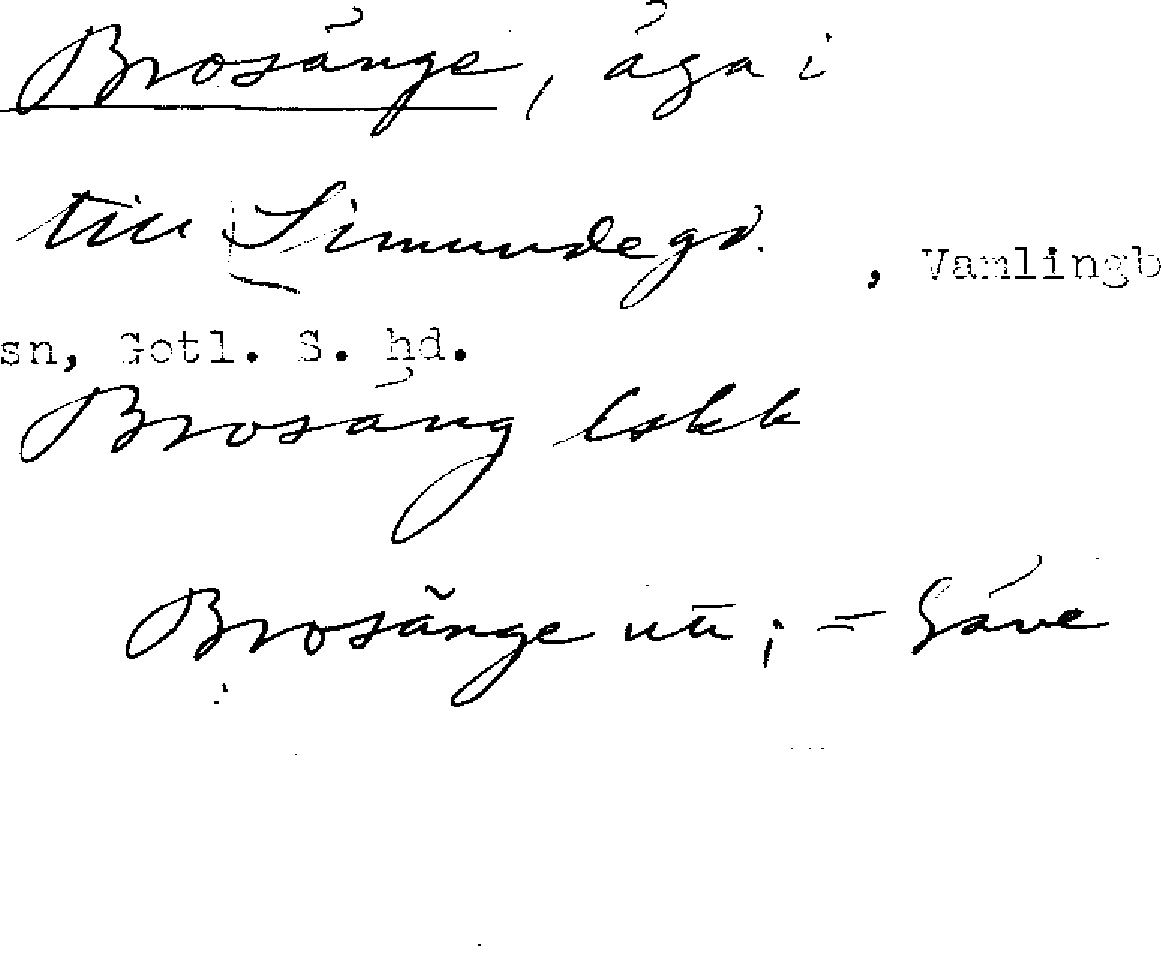 Brosänge, äga i
till Simundegd.
, Vamlingb
sn, Gotl. S. hd.
Brosäng lskk
Brosänge utt; = Säve